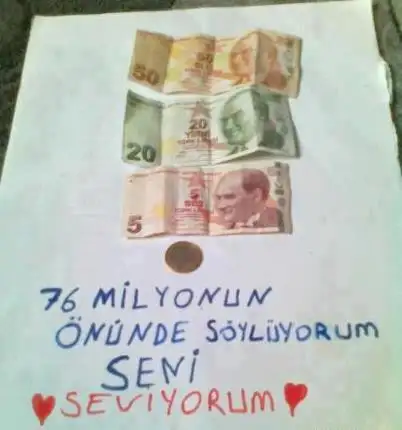 50
20
20
5
5
76 MİLYONUN
ÖNÜNDE SÖYLÜYORUM
SENİ
SEVİYORUM